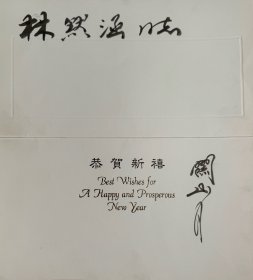 林默涵同志
恭賀新禧
Best Wishes for
A Happy and Prosperous
New Year
關山月